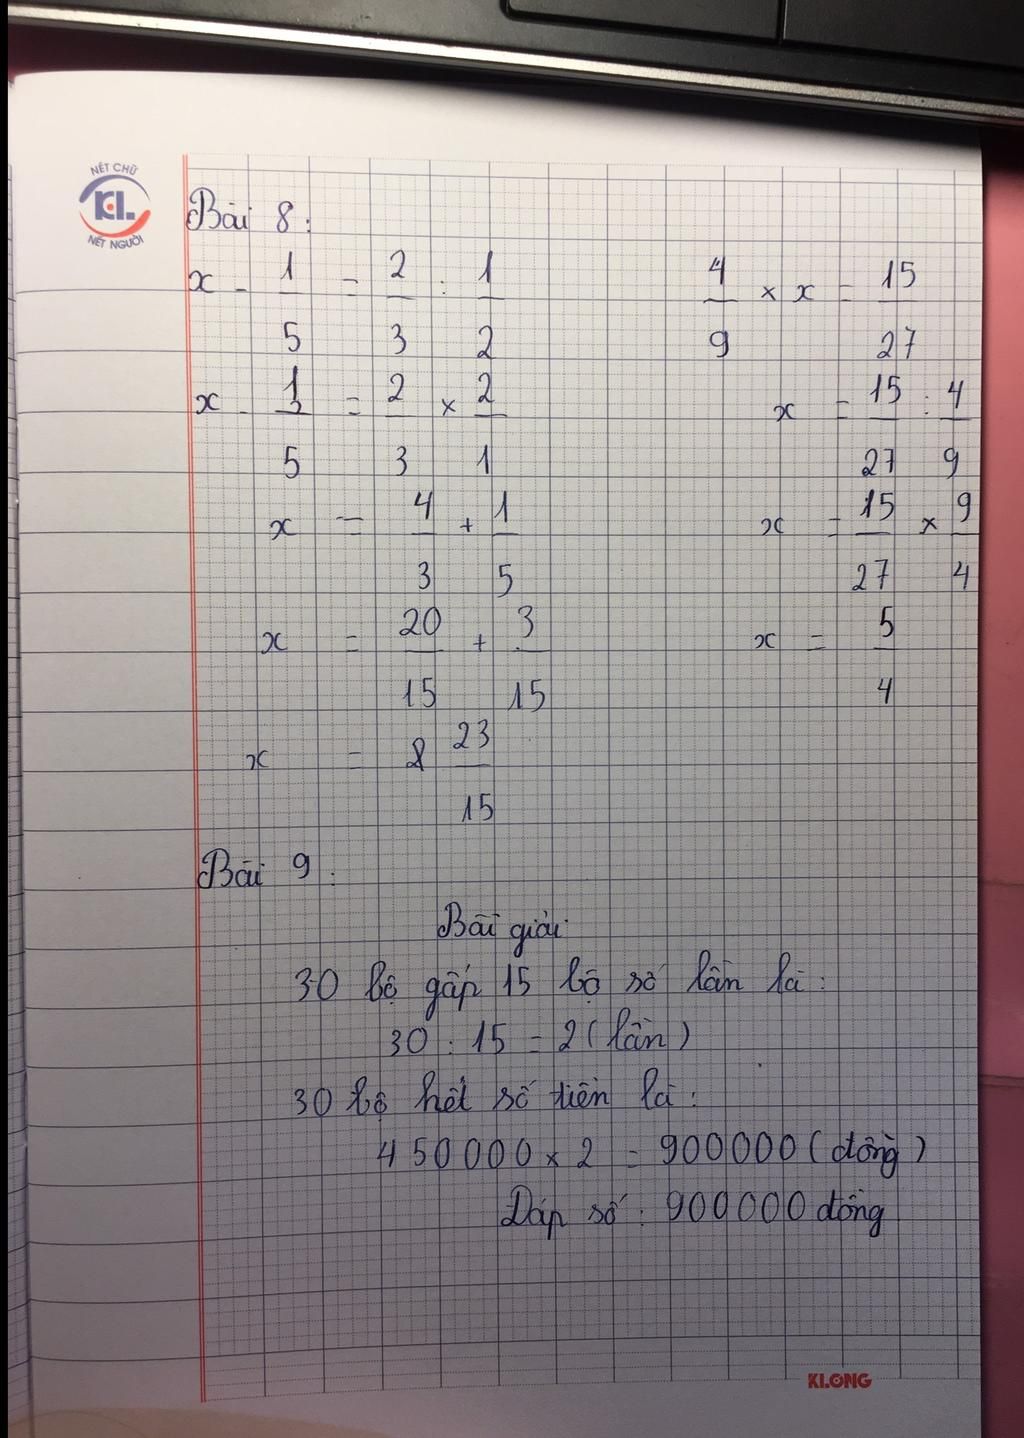 NÉT CHỮ
KL
NÉT NGƯỜI
Bài 8:
x - 1/5 = 2/3 : 1/2
x - 1/5 = 2/3 × 2/1
x = 4/3 + 1/5
x = 20/15 + 3/15
x = 23/15
4/9 × x = 15/27
x = 15/27 : 4/9
x = 15/27 × 9/4
x = 5/4
Bài 9:
Bài giải
30 bộ gấp 15 bộ số lần là:
30 : 15 = 2 (lần)
30 bộ hết số tiền là:
450000 × 2 = 900000 (đồng)
Đáp số: 900000 đồng
KLONG